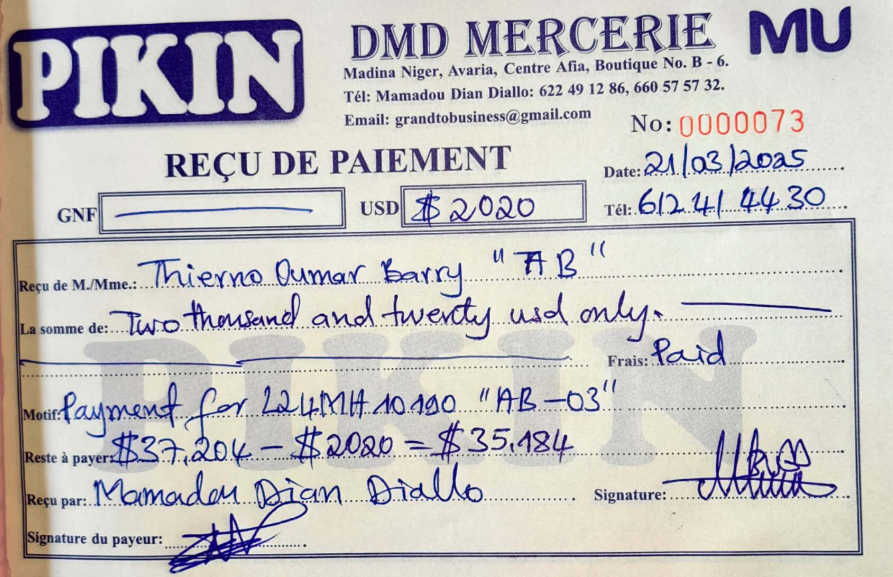 PIKIN
DMD MERCERIE MU
Madina Niger, Avaria, Centre Afia, Boutique No. B - 6.
Tél: Mamadou Dian Diallo: 622 49 12 86, 660 57 57 32.
Email: grandtobusiness@gmail.com
No: 0000073
REÇU DE PAIEMENT
Date: 21/03/2025
GNF USD $ 2020
Tél: 612 41 44 30
Reçu de M./Mme.: Thierno Oumar Barry "AB"
La somme de: Two thousand and twenty usd only.
Frais: Paid
Motif: Payment for L24MH10190 "AB-03"
Reste à payer: $37,204 - $2020 = $35,184
Reçu par: Mamadou Dian Diallo Signature:
Signature du payeur:
PIKIN